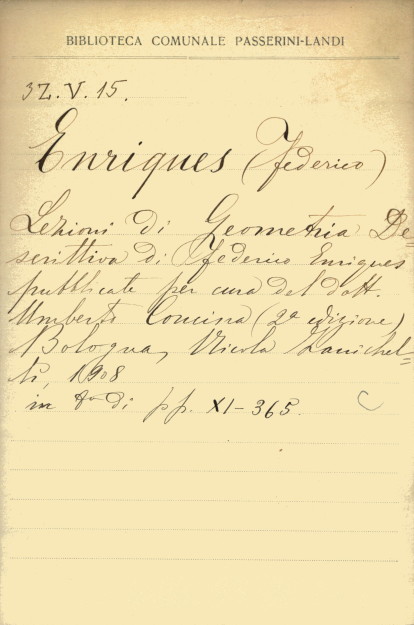 BIBLIOTECA COMUNALE PASSERINI-LANDI
3Z.V.15.
Enriques (Federico)
Lezioni di Geometria De=
scrittiva di Federico Enriques
pubblicate per cura del dott.
Umberto Concina (2ª edizione)
Bologna, Nicola Zanichel=
li, 1908
in 8º di pp. XI-365.
C